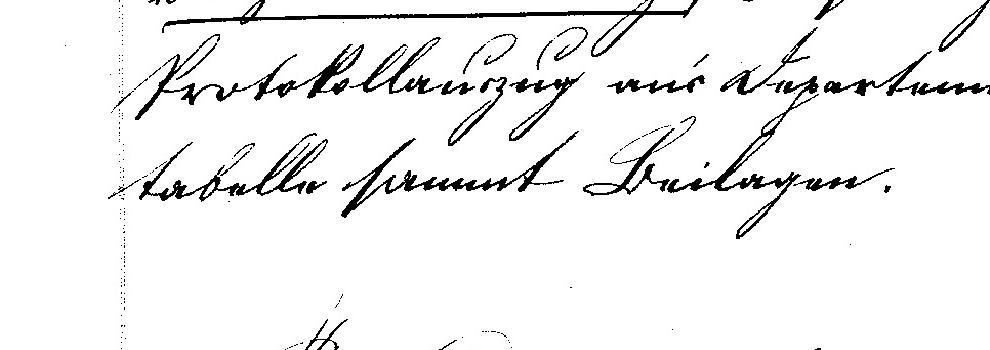 Protokollauszug an's Departem
tabelle sammt Beilagen.